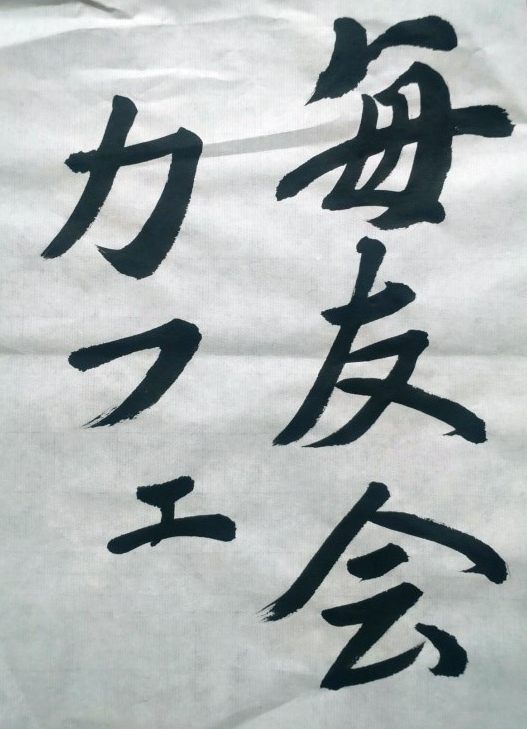 毎友会
カフェ